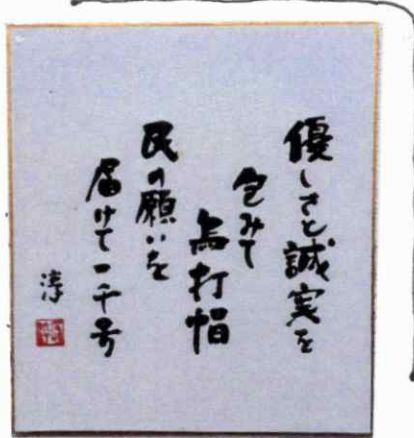 優しさと誠実を
包みて
鳥打帽
民の願いを
届けて一千号
淳